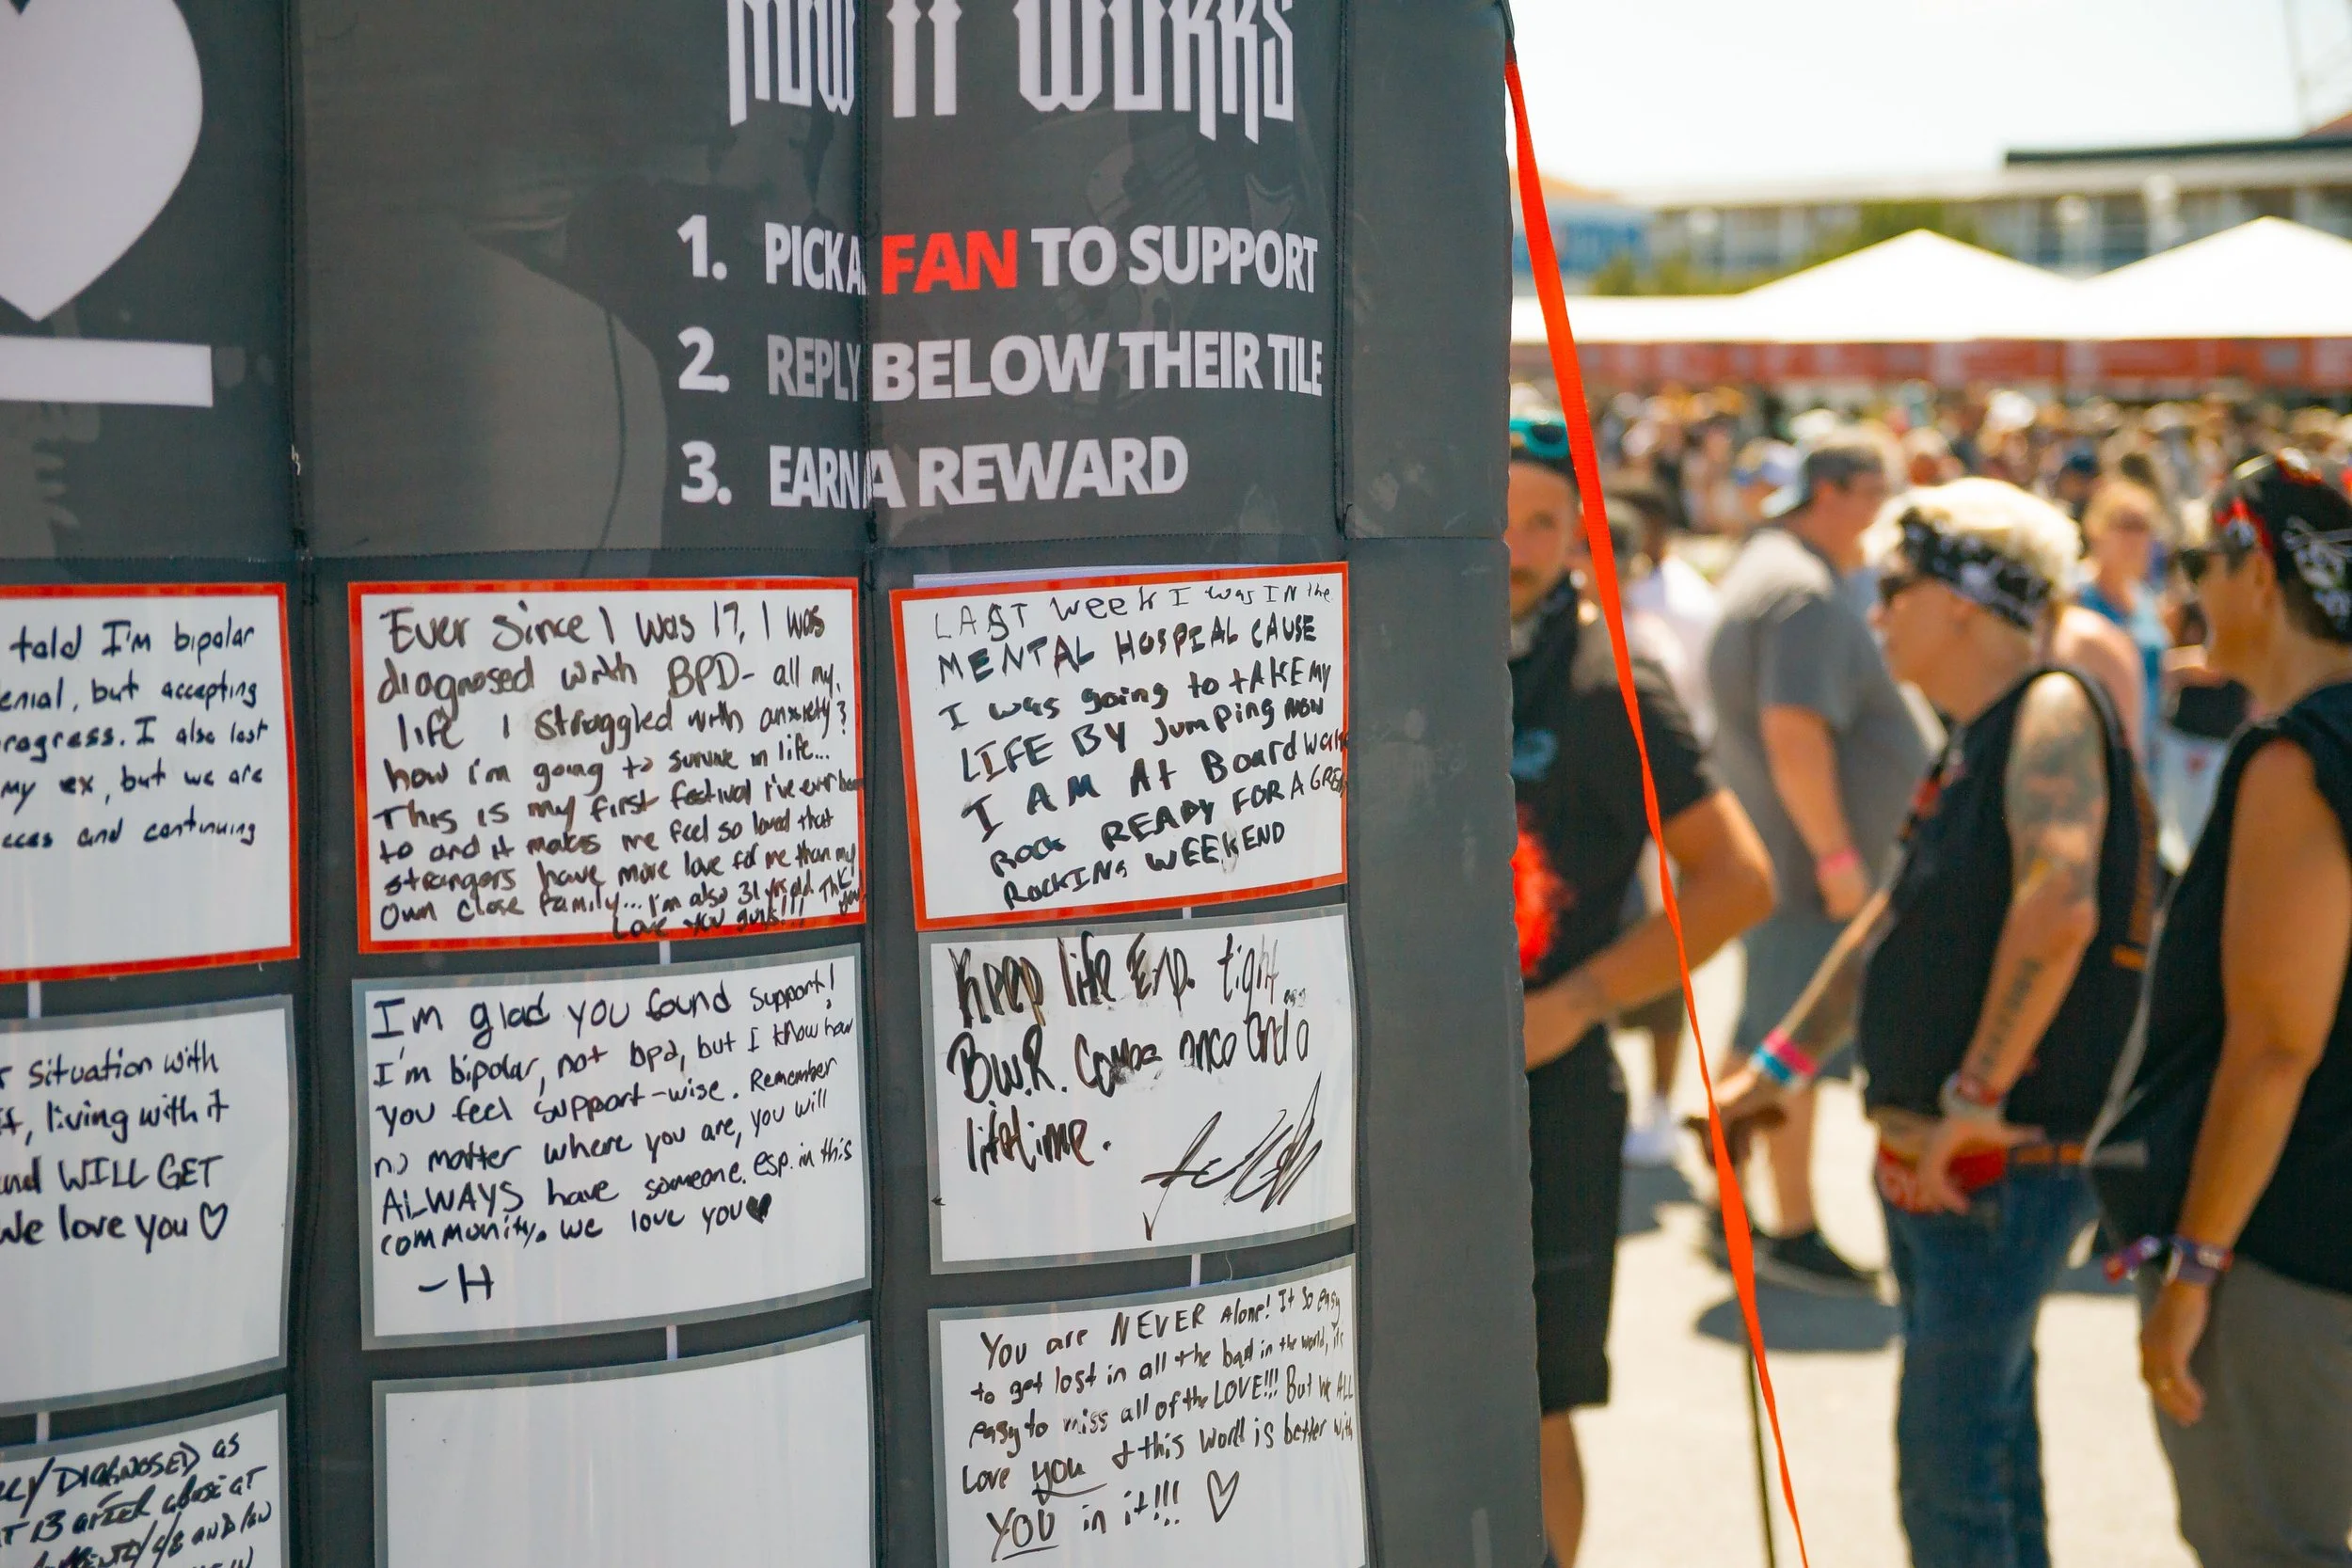 HOW IT WORKS
1. PICK A FAN TO SUPPORT
2. REPLY BELOW THEIR TILE
3. EARN A REWARD
told I'm bipolar
but accepting
I also lost
my ex, but we are
and continuing
Situation with
living with it
WILL GET
We love you ♡
DIAGNOSED AS
13
AND
Ever since I was 17, I was
diagnosed with BPD- all my
life I struggled with anxiety &
how i'm going to survive in life...
This is my first festival I've ever been
to and it makes me feel so loved that
strangers have more love for me than my
own close family... I'm also 31 yrs old
Love you guys!!!
I'm glad you found support!
I'm bipolar, not bpd, but I know how
you feel support-wise. Remember
no matter where you are, you will
ALWAYS have someone. esp. in this
community. we love you♥
-H
LAST week I was IN the
MENTAL HOSPIAL CAUSE
I was going to tAKE MY
LIFE BY JumPing NOW
I AM At Boardwalk
Rock READY FOR A GREAT
RockING WEEKEND
Keep life Exp. tight
B.W.R. Comes once and a
lifetime.
You are NEVER Alone! It so easy
to get lost in all the bad in the world, its
easy to miss all of the LOVE!!! But we ALL
Love you & this world is better with
YOU in it!!! ♡